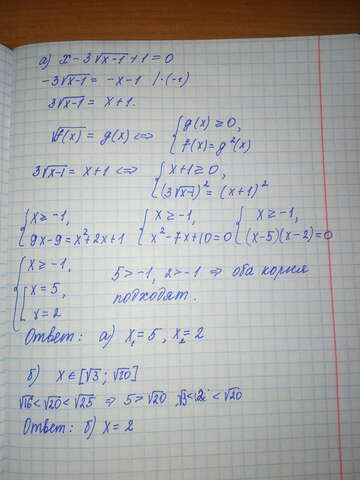 а) x - 3√(x-1) + 1 = 0
-3√(x-1) = -x-1 | · (-1)
3√(x-1) = x+1.
√f(x) = g(x) <=> { g(x) ≥ 0, f(x) = g²(x)
3√(x-1) = x+1 <=> { x+1 ≥ 0, (3√(x-1))² = (x+1)²
{ x ≥ -1, 9x-9 = x²+2x+1 { x ≥ -1, x²-7x+10=0 { x ≥ -1, (x-5)(x-2)=0
{ x ≥ -1, [ x = 5, x = 2
5 > -1, 2 > -1 => оба корня
подходят.
Ответ: а) x₁ = 5, x₂ = 2
б) x ∈ [√3; √20]
√16 < √20 < √25 => 5 > √20 √3 < 2 < √20
Ответ: б) x = 2